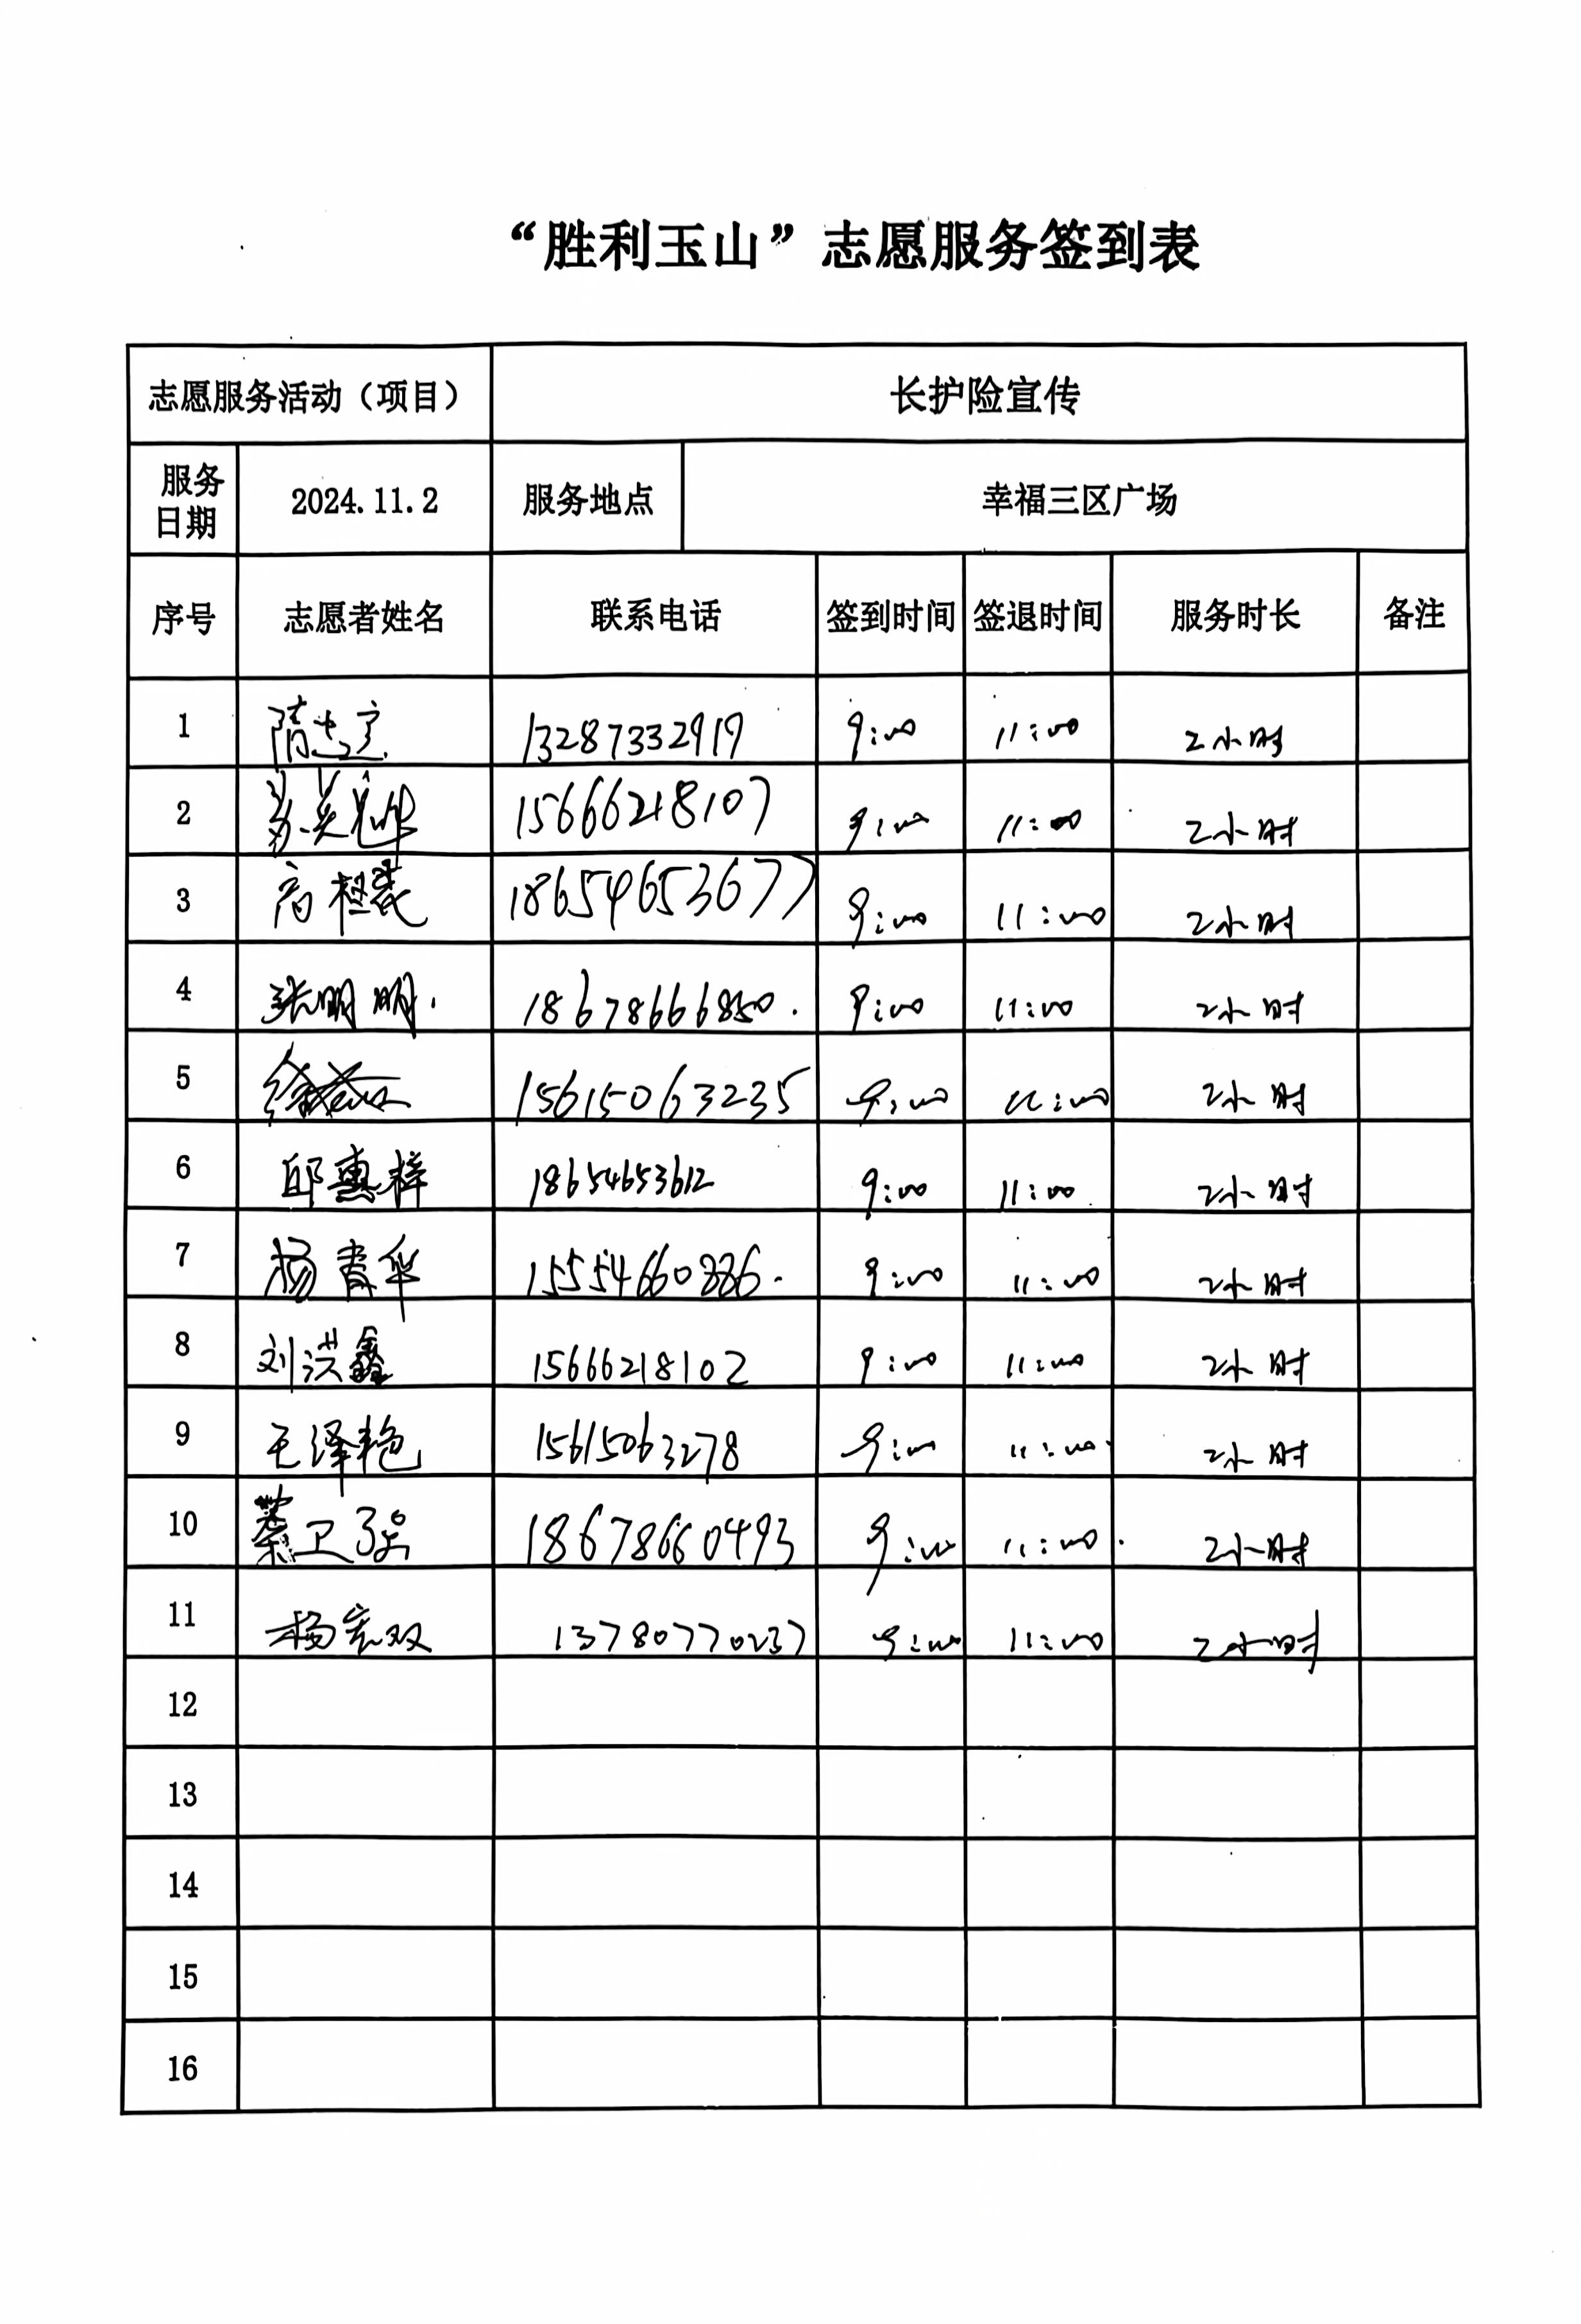 “胜利玉山”志愿服务签到表
志愿服务活动（项目） 长护险宣传
服务日期 2024.11.2 服务地点 幸福三区广场
序号 志愿者姓名 联系电话 签到时间 签退时间 服务时长 备注
1 13287332919 9:00 11:00 2小时
2 15666218107 9:00 11:00 2小时
3 18654653677 9:00 11:00 2小时
4 张明明. 18678666850. 9:00 11:00 2小时
5 15615063235 9:00 11:00 2小时
6 邱惠梓 18654653612 9:00 11:00 2小时
7 杨青华 15554660886. 9:00 11:00 2小时
8 刘洪鑫 15666218102 9:00 11:00 2小时
9 毛泽艳 15615063278 9:00 11:00 2小时
10 18678660493 9:00 11:00 2小时
11 杨宏双 13780770237 9:00 11:00 2小时
12
13
14
15
16